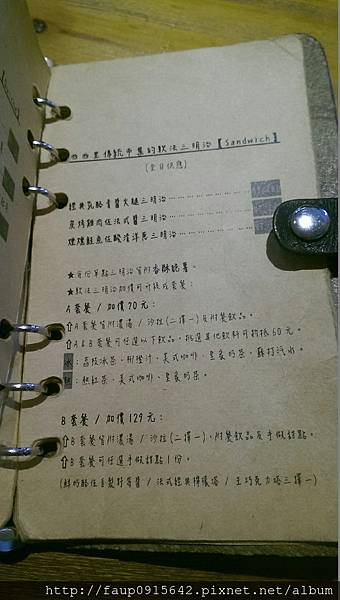 西西里傳統市集的軟法三明治【Sandwich】
(全日供應)
經典乳酪青醬火腿三明治
炭烤雞肉佐法式醬三明治
煙燻鮭魚佐酸漬洋蔥三明治
★每份單點三明治皆附香酥脆薯。
★軟法三明治加價可升級成套餐:
A 套餐 / 加價 70 元:
⇧A 套餐皆附濃湯 / 沙拉(二擇一)及附餐飲品。
⇧A&B 套餐可任選以下飲品,挑選其他飲料可折抵 60 元。
冰:荔枝冰茶、柳橙汁、美式咖啡、皇家奶茶、蘇打汽水。
熱:熱紅茶、美式咖啡、皇家奶茶。
B 套餐 / 加價 129 元:
⇧B 套餐皆附濃湯 / 沙拉(二擇一),附餐飲品及手做甜點。
⇧B 套餐可任選手做甜點 1 份。
(鮮奶酪佐自製野莓醬 / 法式經典檸檬塔 / 生巧克力塔三擇一)
http://faup0915642.pixnet.net/album